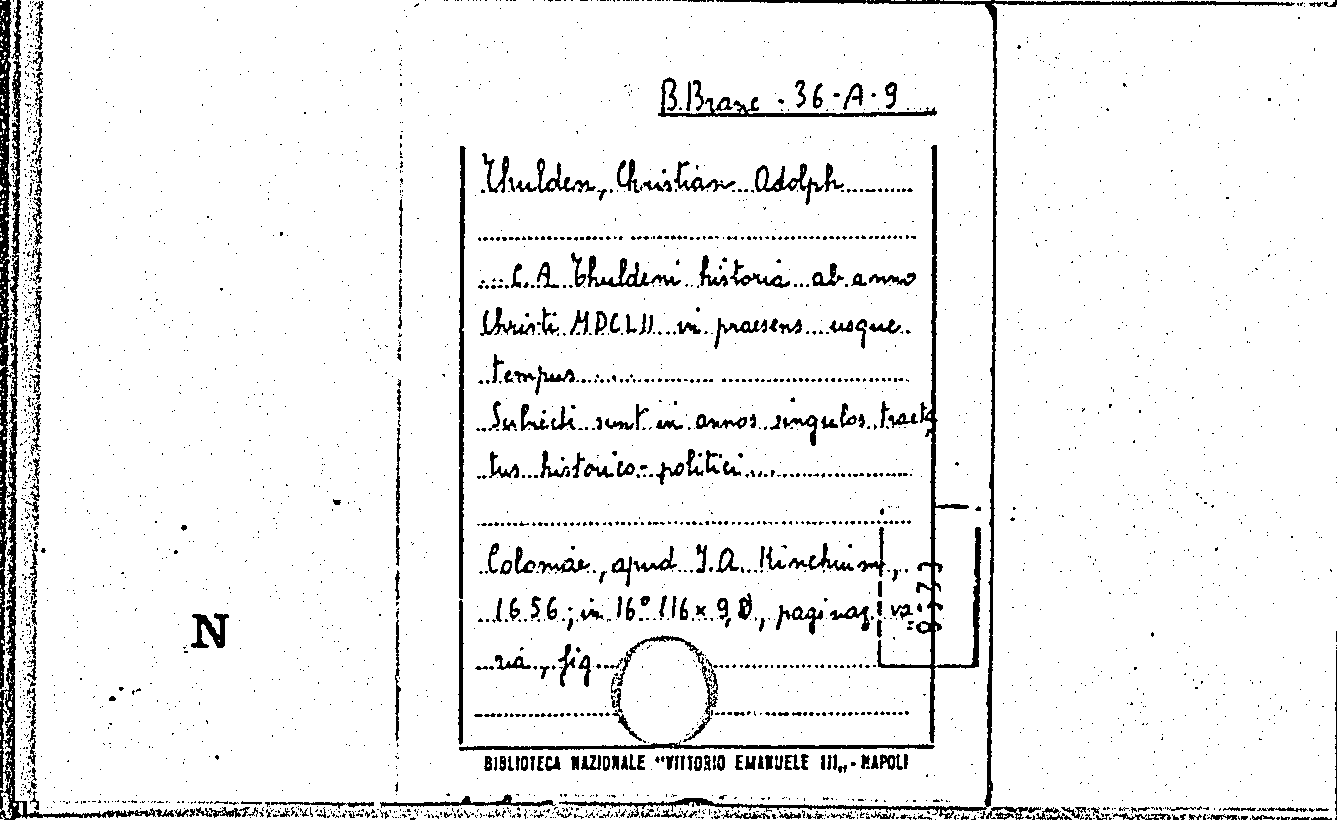 B. Branc. 36-A-9
Thulden, Christian Adolph
... C. A. Thuldeni historia ab anno
Christi MDCLII in praesens usque
tempus.....
Subiecti sunt in annos singulos tracta
tus historico-politici...
Coloniae, apud I. A. Kinchium,
1656; in 16° (16 x 9,8), paginaz. va-
ria, fig
N
BIBLIOTECA NAZIONALE "VITTORIO EMANUELE III„ - NAPOLI